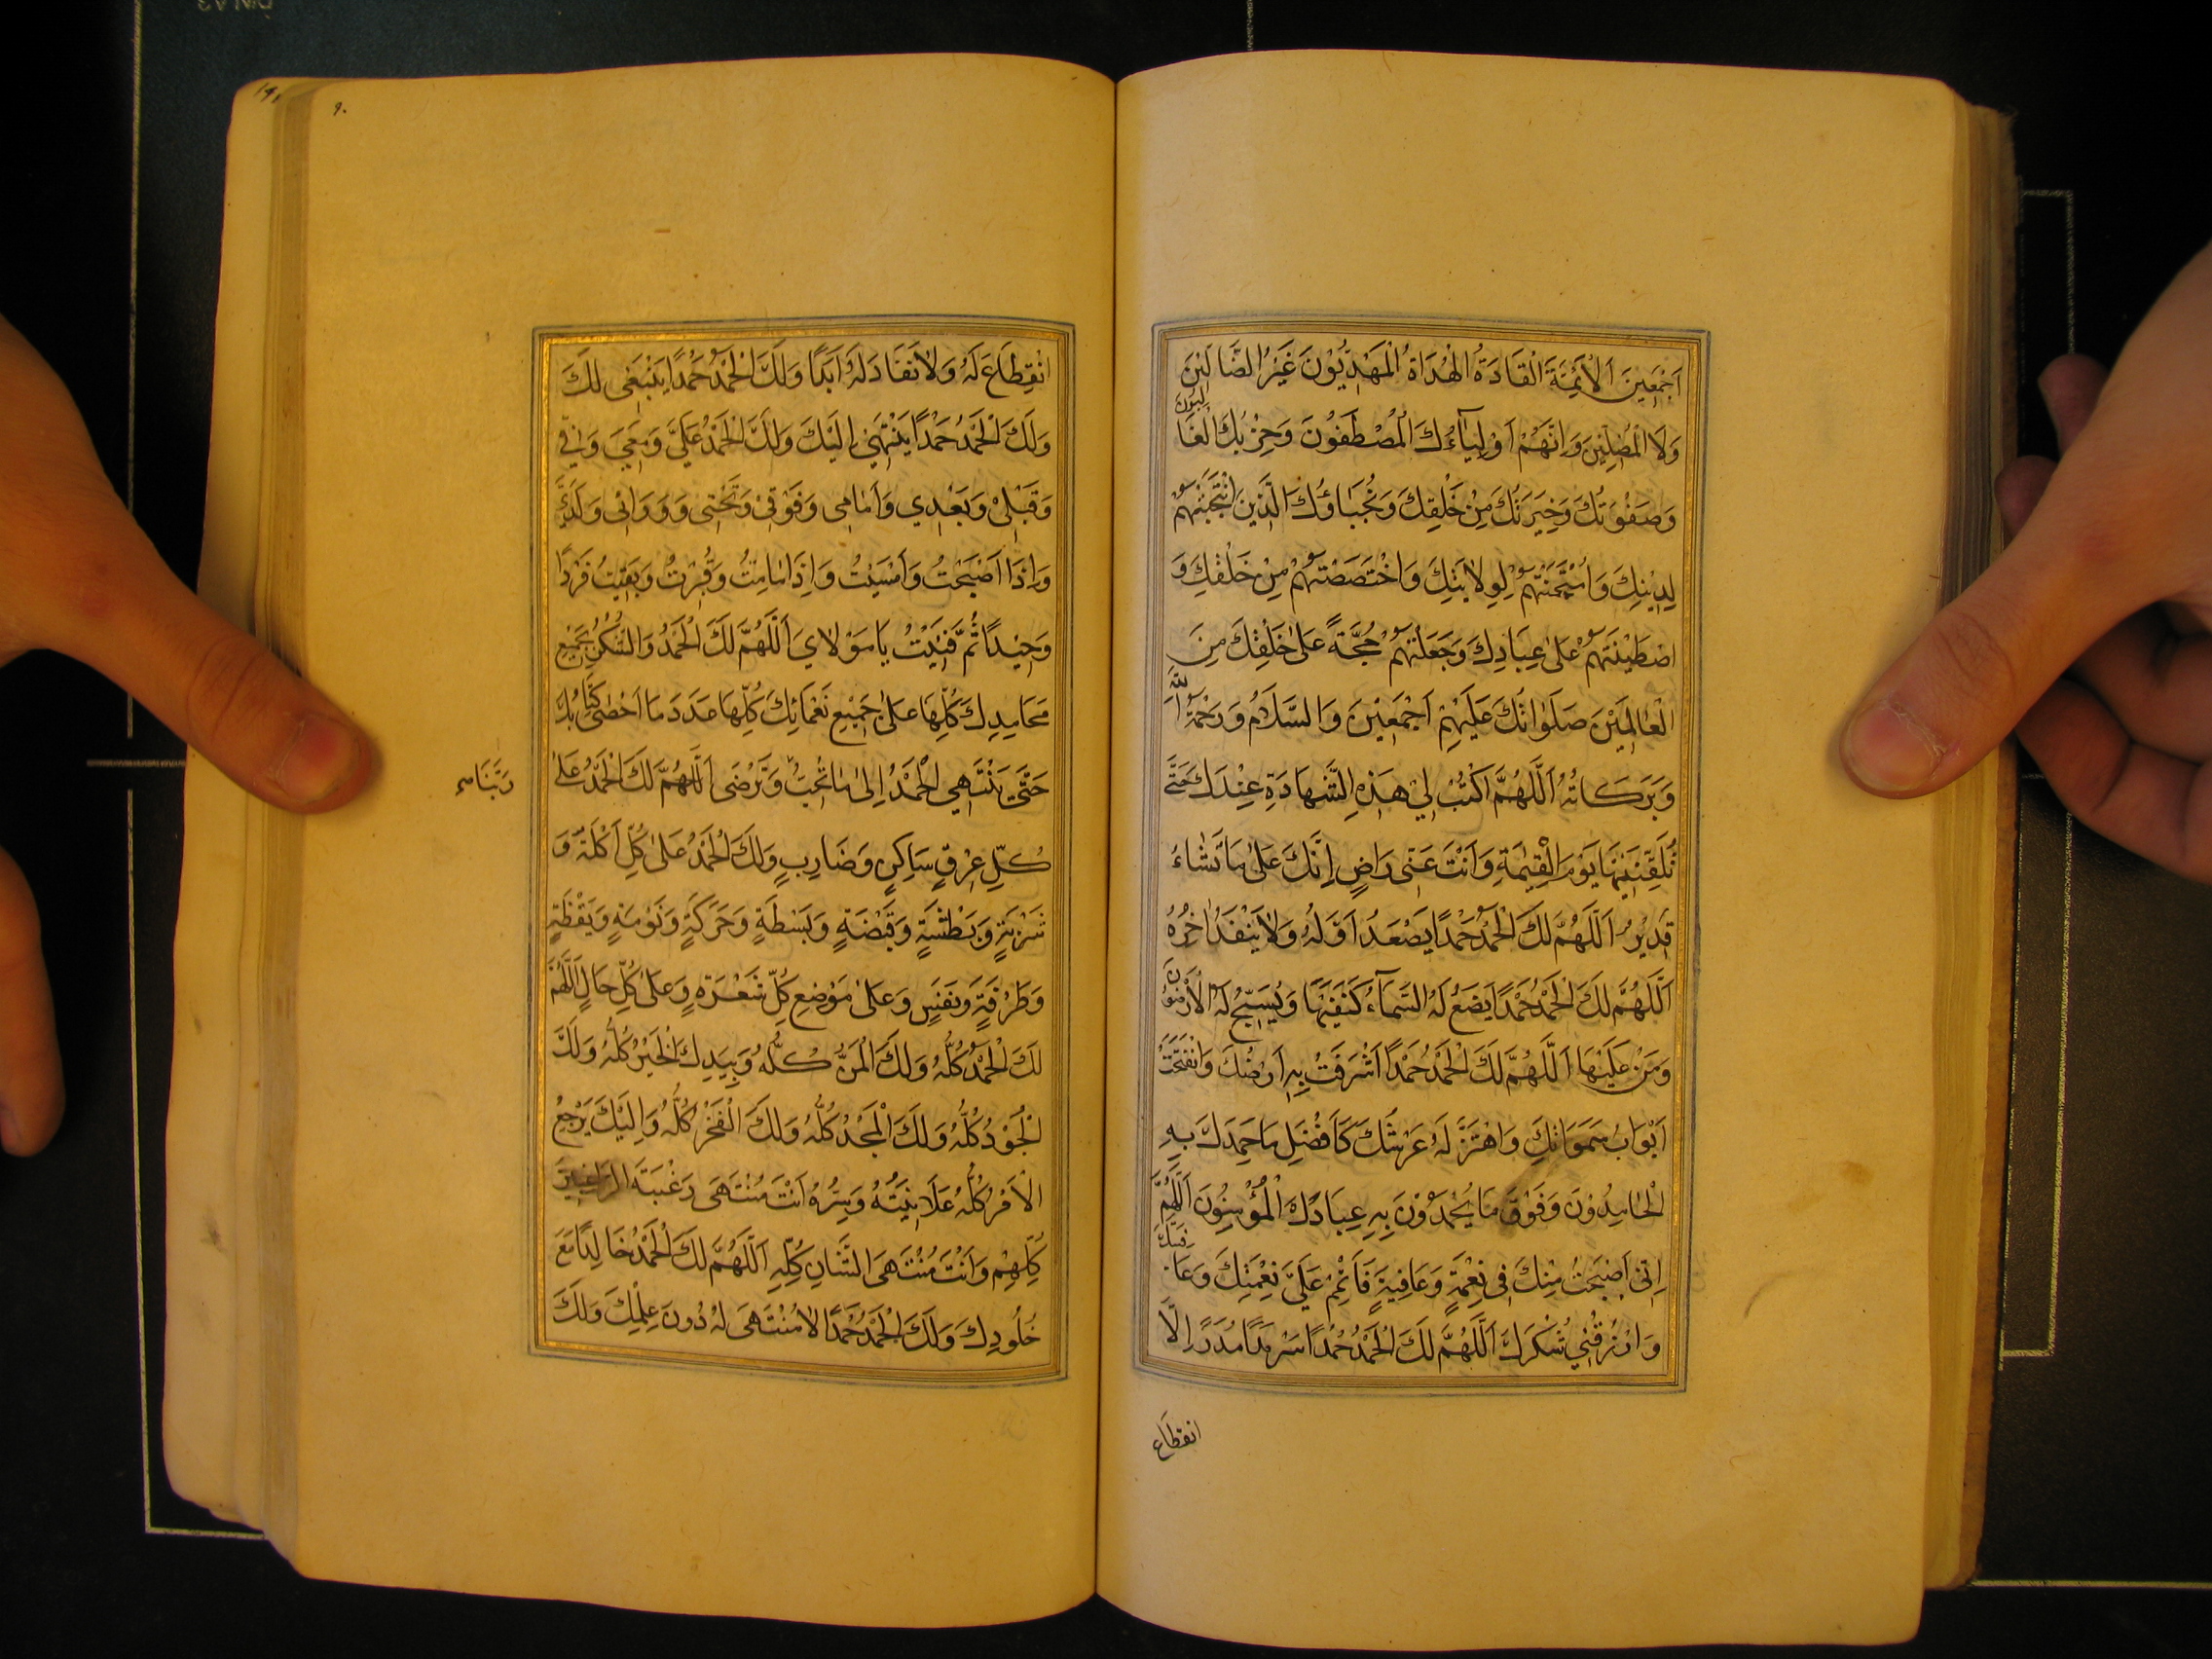 اَجْمَعِينَ اَلْاَئِمَّةَ الْقَادَةُ الْهُدَاةُ الْمَهْدِيُّوْنَ غَيْرُ الضَّالِّيْنَ
وَلَا الْمُضِلِّيْنَ وَاِنَّهُمْ اَوْلِيَاۤءُكَ الْمُصْطَفَوْنَ وَحِزْبُكَ الْغَالِبُونَ
وَصَفْوَتُكَ وَخِيَرَتُكَ مِنْ خَلْقِكَ وَنُجَبَاؤُكَ الَّذِيْنَ انْتَجَبْتَهُمْ
لِدِيْنِكَ وَامْتَحَنْتَهُمْ لِوِلَايَتِكَ وَاخْتَصَصْتَهُمْ مِنْ خَلْقِكَ وَ
اصْطَفَيْتَهُمْ عَلٰى عِبَادِكَ وَجَعَلْتَهُمْ حُجَّةً عَلٰى خَلْقِكَ مِنَ
الْعَالَمِيْنَ صَلَوَاتُكَ عَلَيْهِمْ اَجْمَعِيْنَ وَالسَّلَامُ وَرَحْمَةُ اللّٰهِ
وَبَرَكَاتُهُ اَللّٰهُمَّ اكْتُبْ لِيْ هٰذِهِ الشَّهَادَةَ عِنْدَكَ حَتّٰى
تُلَقِّنَنِيْهَا يَوْمَ الْقِيٰمَةِ وَاَنْتَ عَنِّى رَاضٍ اِنَّكَ عَلٰى مَا تَشَاءُ
قَدِيْرٌ اَللّٰهُمَّ لَكَ الْحَمْدُ حَمْدًا يَصْعَدُ اَوَّلُهُ وَلَا يَنْفَدُ اٰخِرُهُ
اَللّٰهُمَّ لَكَ الْحَمْدُ حَمْدًا يَضَعُ لَهُ السَّمَاۤءُ كَنَفَيْهَا وَيُسَبِّحُ لَهُ الْاَرْضُوْنَ
وَمَنْ عَلَيْهَا اَللّٰهُمَّ لَكَ الْحَمْدُ حَمْدًا اَشْرَقَتْ بِهِ اَرْضُكَ وَانْفَتَحَتْ
اَبْوَابُ سَمَوَاتِكَ وَاهْتَزَّ لَهُ عَرْشُكَ كَاَفْضَلِ مَا حَمِدَكَ بِهِ
الْحَامِدُوْنَ وَفَوْقَ مَا يَحْمَدُوْنَ بِهِ عِبَادُكَ الْمُؤْمِنُوْنَ اَللّٰهُمَّ
اِنِّىْ اَصْبَحْتُ مِنْكَ فِى نِعْمَةٍ وَعَافِيَةٍ فَاَتْمِمْ عَلَيَّ نِعْمَتَكَ وَعَافِيَتَكَ
وَارْزُقْنِيْ شُكْرَكَ اَللّٰهُمَّ لَكَ الْحَمْدُ حَمْدًا سَرْمَدًا لَا
انقطاع
انْقِطَاعَ لَهُ وَلَا نَفَادَ لَهُ اَبَدًا وَلَكَ الْحَمْدُ حَمْدًا يَنْبَغِى لَكَ
وَلَكَ الْحَمْدُ حَمْدًا يَنْتَهِيْ اِلَيْكَ وَلَكَ الْحَمْدُ عَلَيَّ وَمَعِيَ وَفِيَّ
وَقَبْلِىْ وَبَعْدِي وَاَمَامِى وَفَوْقِىْ وَتَحْتِى وَلَدَيَّ
وَاِذَا اَصْبَحْتُ وَاَمْسَيْتُ وَاِذَا مَا مِتُّ وَقُبِرْتُ وَبَقِيْتُ فَرْدًا
وَحِيْدًا ثُمَّ فَنِيْتُ يَا مَوْلَايَ اَللّٰهُمَّ لَكَ الْحَمْدُ وَالشُّكْرُ بِجَمِيْعِ
مَحَامِدِكَ كُلِّهَا عَلٰى جَمِيْعِ نَعْمَائِكَ كُلِّهَا عَدَدَ مَا اَحْصٰى كِتَابُكَ
حَتّٰى يَنْتَهِيَ الْحَمْدُ اِلٰى مَا تُحِبُّ وَتَرْضَى اَللّٰهُمَّ لَكَ الْحَمْدُ عَلٰى
رَبَّنَا
كُلِّ عِرْقٍ سَاكِنٍ وَضَارِبٍ وَلَكَ الْحَمْدُ عَلٰى كُلِّ اَكْلَةٍ وَ
شَرْبَةٍ وَبَطْشَةٍ وَقَبْضَةٍ وَبَسْطَةٍ وَحَرَكَةٍ وَنَوْمَةٍ وَيَقْظَةٍ
وَطَرْفَةٍ وَنَفَسٍ وَعَلٰى مَوْضِعِ كُلِّ شَعْرَةٍ وَعَلٰى كُلِّ حَالٍ اَللّٰهُمَّ
لَكَ الْحَمْدُ كُلُّهُ وَلَكَ الْمَنُّ كُلُّهُ وَبِيَدِكَ الْخَيْرُ كُلُّهُ وَلَكَ
الْجُوْدُ كُلُّهُ وَلَكَ الْمَجْدُ كُلُّهُ وَلَكَ الْفَخْرُ كُلُّهُ وَاِلَيْكَ يَرْجِعُ
الْاَمْرُ كُلُّهُ عَلَانِيَتُهُ وَسِرُّهُ اَنْتَ مُنْتَهَى رَغْبَةِ الرَاغِبِيْنَ
كُلِّهِمْ وَاَنْتَ مُنْتَهَى الشَّانِ كُلِّهِ اَللّٰهُمَّ لَكَ الْحَمْدُ خَالِدًا مَعَ
خُلُودِكَ وَلَكَ الْحَمْدُ حَمْدًا لَا مُنْتَهَى لَهُ دُونَ عِلْمِكَ وَلَكَ